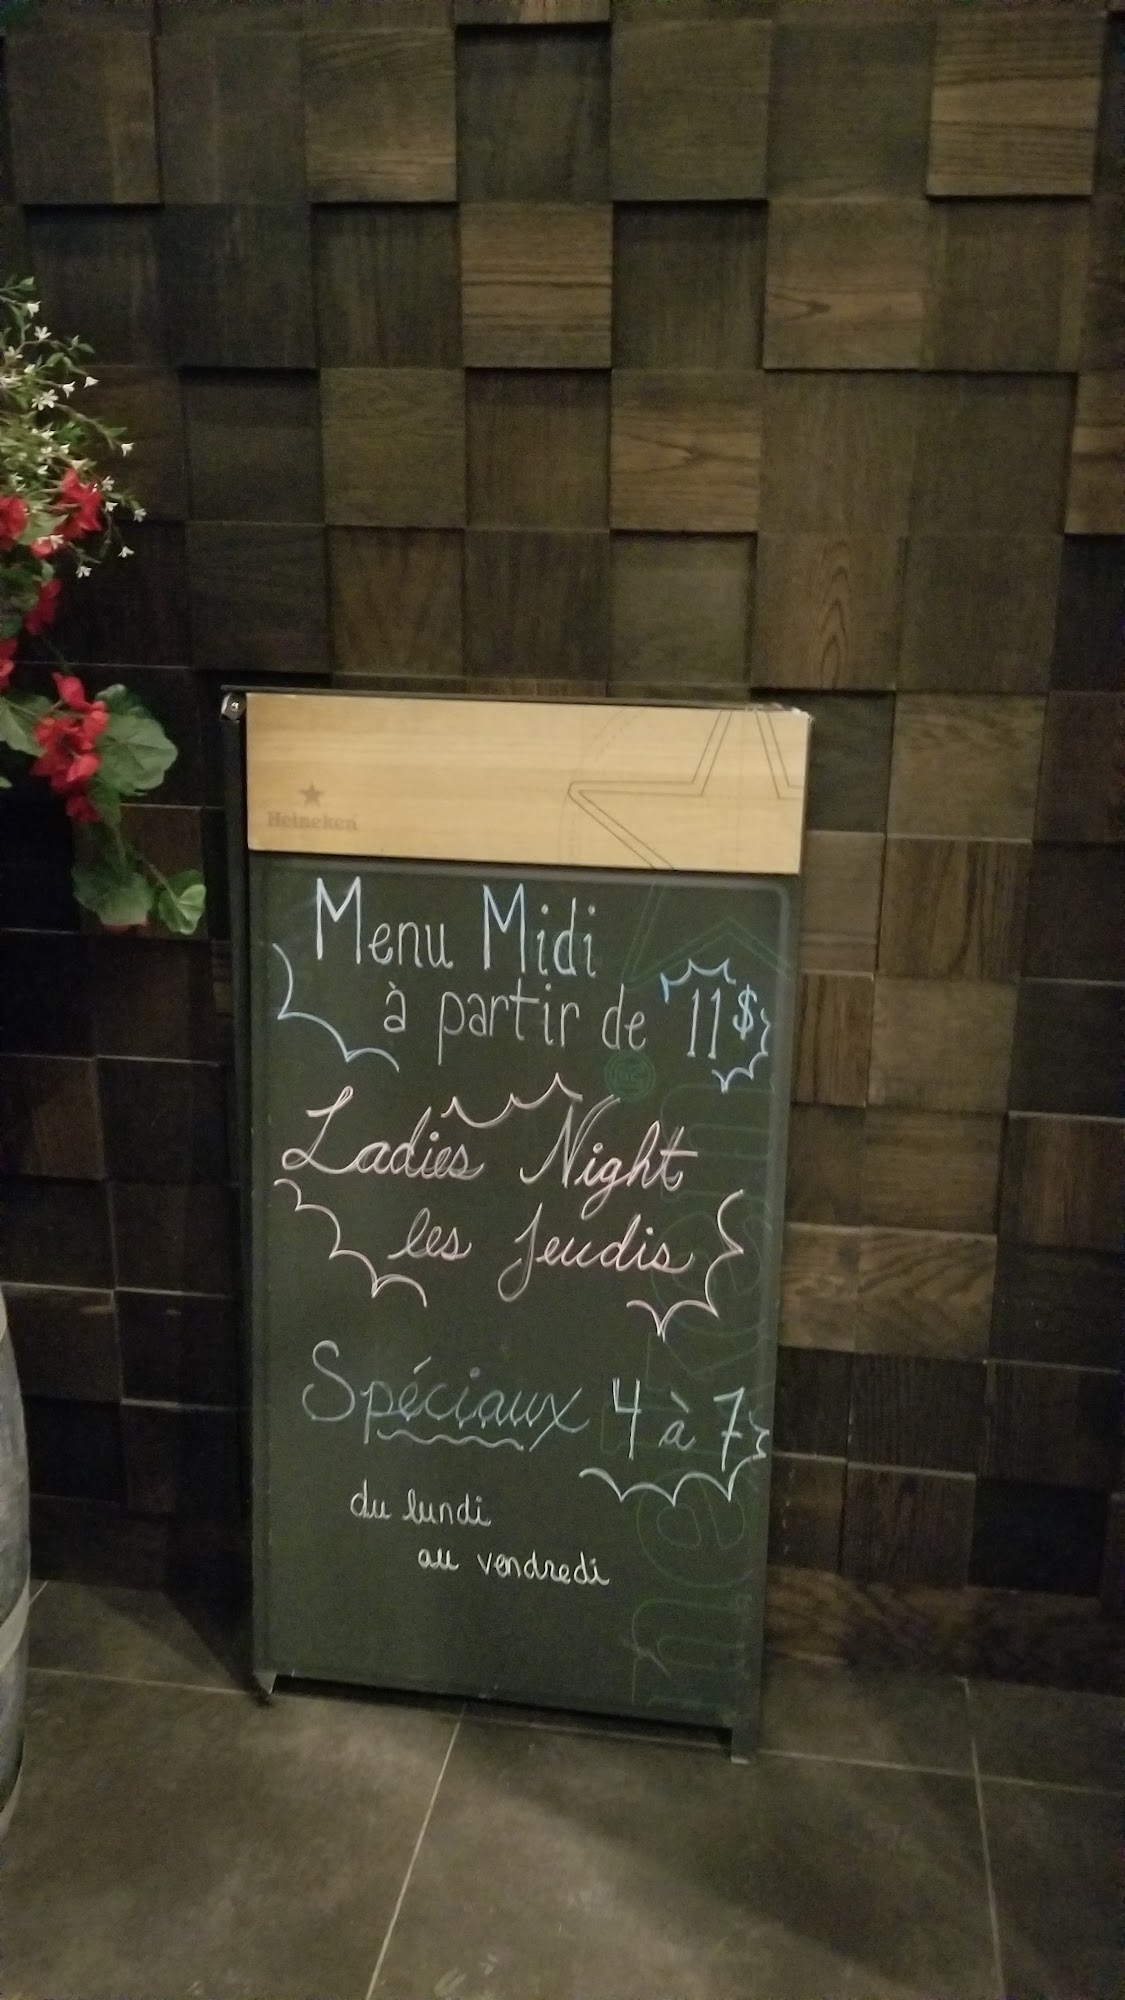 Heineken
Menu Midi
à partir de 11$
Ladies Night
les jeudis
Spéciaux 4 à 7
du lundi
au vendredi
Heineken